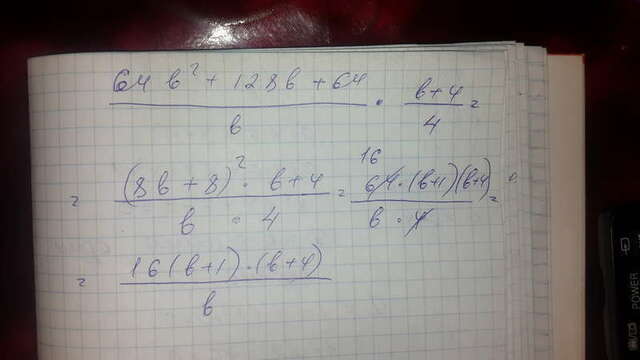 64 b² + 128b + 64 / b • b+4 / 4 =
= (8b + 8)² • b+4 / b • 4 = 16 64 • (b+1)(b+4) / b • 4 =
= 16(b+1) • (b+4) / b
POWER